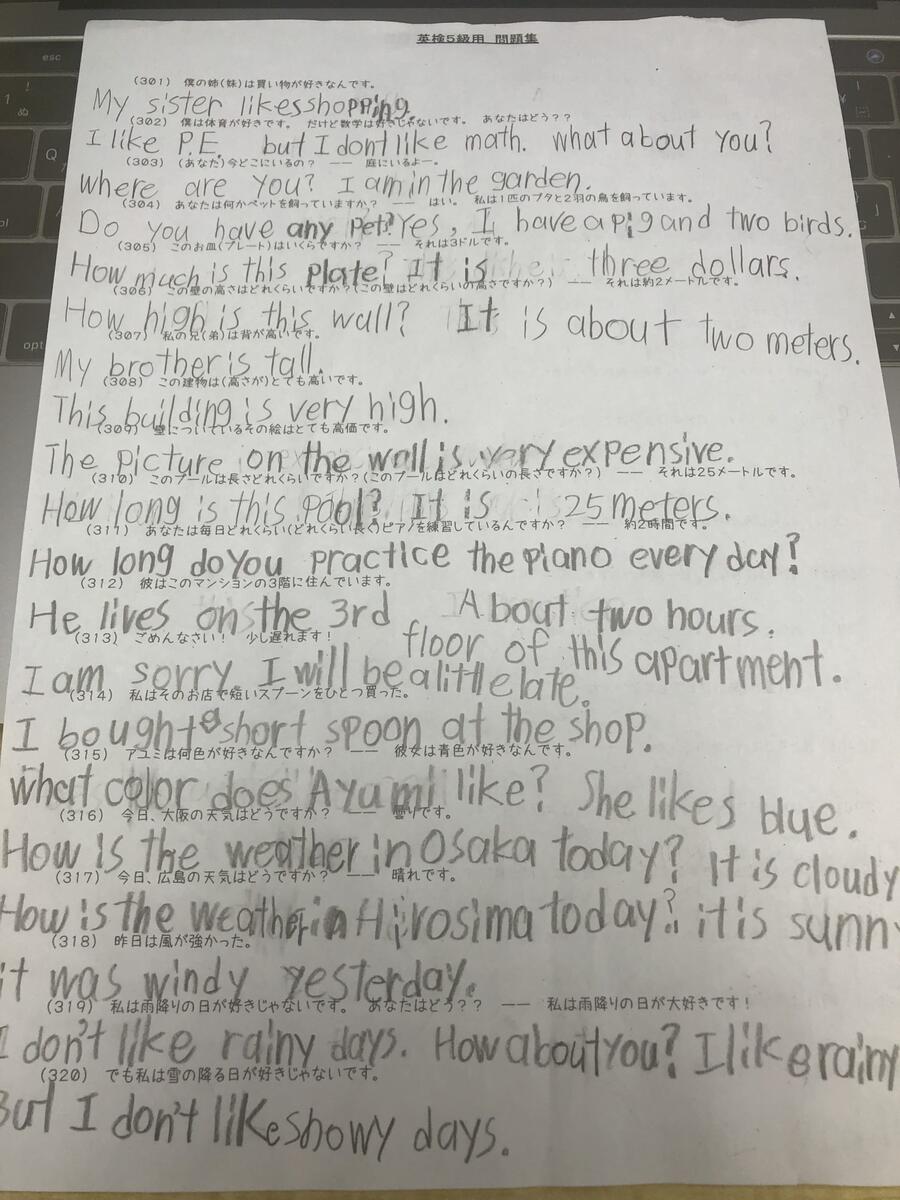 英検5級用 問題集
(301) 僕の姉(妹)は買い物が好きなんです。
My sister likes shopping.
(302) 僕は体育が好きです。 だけど数学は好きじゃないです。 あなたはどう??
I like P.E. but I don't like math. what about you?
(303) (あなた)今どこにいるの? ―― 庭にいるよー。
where are you? I am in the garden.
(304) あなたは何かペットを飼っていますか? ―― はい。 私は1匹のブタと2羽の鳥を飼っています。
Do you have any pet? Yes, I have a pig and two birds.
(305) このお皿(プレート)はいくらですか? ―― それは3ドルです。
How much is this plate? It is three dollars.
(306) この壁の高さはどれくらいですか?(この壁はどれくらいの高さですか?) ―― それは約2メートルです。
How high is this wall? It is about two meters.
(307) 私の兄(弟)は背が高いです。
My brother is tall.
(308) この建物は(高さが)とても高いです。
This building is very high.
(309) 壁についているその絵はとても高価です。
The picture on the wall is very expensive.
(310) このプールは長さどれくらいですか?(このプールはどれくらいの長さですか?) ―― それは25メートルです。
How long is this pool? It is 25 meters.
(311) あなたは毎日どれくらい(どれくらい長く)ピアノを練習しているんですか? ―― 約2時間です。
How long do you practice the piano every day?
(312) 彼はこのマンションの3階に住んでいます。
He lives on the 3rd About two hours.
(313) ごめんなさい! 少し遅れます!
floor of this apartment.
I am sorry. I will be a little late.
(314) 私はそのお店で短いスプーンをひとつ買った。
I bought a short spoon at the shop.
(315) アユミは何色が好きなんですか? ―― 彼女は青色が好きなんです。
what color does Ayumi like? She likes blue.
(316) 今日、大阪の天気はどうですか? ―― 曇りです。
How is the weather in Osaka today? It is cloudy
(317) 今日、広島の天気はどうですか? ―― 晴れです。
How is the weather in Hirosima today? it is sunn
(318) 昨日は風が強かった。
it was windy yesterday.
(319) 私は雨降りの日が好きじゃないです。 あなたはどう?? ―― 私は雨降りの日が大好きです!
I don't like rainy days. How about you? I like rainy
(320) でも私は雪の降る日が好きじゃないです。
But I don't like snowy days.